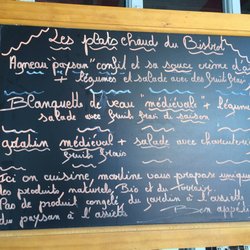 Les plats chauds du Bistrot
Agneau "paysan" confit et sa sauce crème d'a
+ légumes et salade avec des fruit frais
Blanquette de veau "médiéval" + légu
salade avec fruit frais de saison
gratin médiéval + salade avec charcuterie
fruits frais
Ici on cuisine, martine vous prépare unique
des produits naturels, Bio et du terroir
Pas de produit congelé, du jardin à l'assiette
du paysan à l'assiette Bon appétit